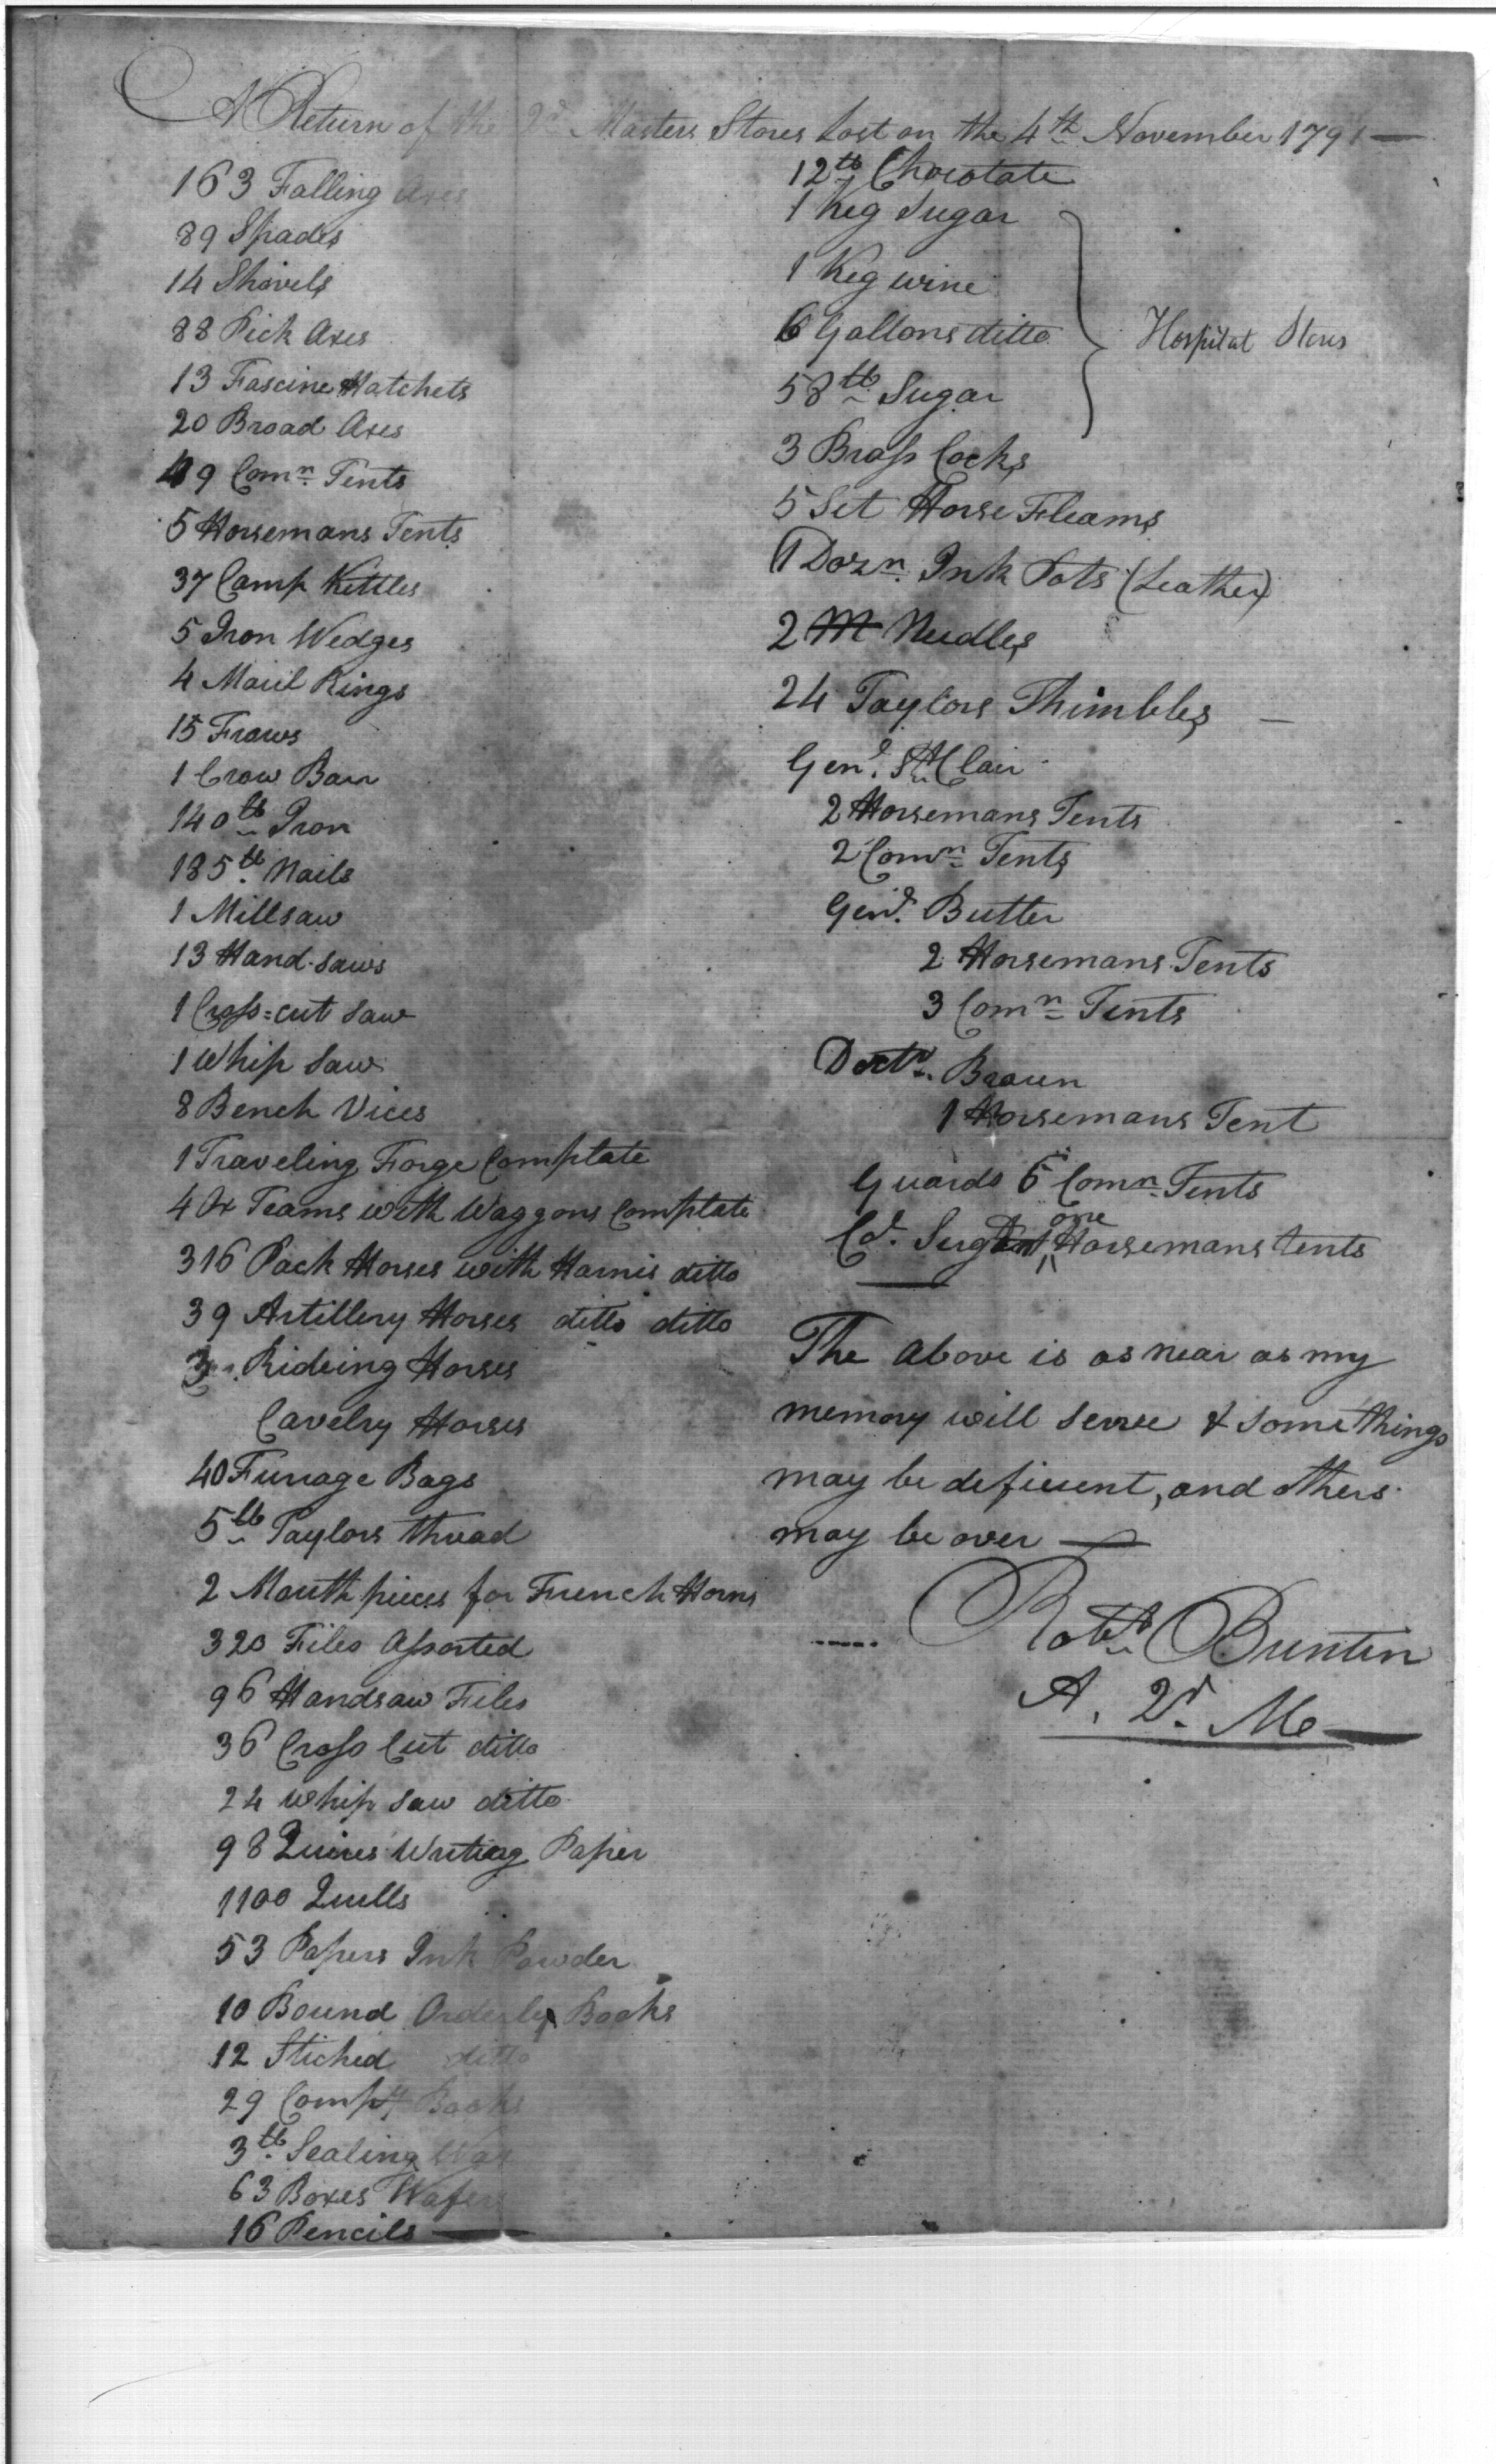 A Return of the Qr. Masters Stores Lost on the 4th November 1791
163 Falling Axes
89 Spades
14 Shovels
88 Pick Axes
13 Fascine Hatchets
20 Broad Axes
49 Comn. Tents
5 Horsemans Tents
37 Camp Kettles
5 Iron Wedges
4 Maul Rings
15 Fraws
1 Crow Barr
140 lb Iron
185 lb Nails
1 Millsaw
13 Hand-Saws
1 Cross=cut Saw
1 Whip Saw
8 Bench Vices
1 Traveling Forge Complate
4 Ox Teams with Waggons Complate
316 Pack Horses with Harnis ditto
39 Artillery Horses ditto ditto
3 Rideing Horses
Cavelry Horses
40 Furrage Bags
5 lb Taylors thread
2 Mouth pieces for French Horns
320 Files Assorted
96 Handsaw Files
36 Cross Cut ditto
24 Whip Saw ditto
98 Quires Writing Paper
1100 Quills
53 Papers Ink Powder
10 Bound Orderly Books
12 Stiched ditto
29 Compy Books
3 lb Sealing Wax
63 Boxes Wafers
16 Pencils
12 lb Chocolate
1 Keg Sugar
1 Keg wine
6 Gallons ditto
58 lb Sugar
Hospital Stores
3 Brass Cocks
5 Set Horse Fleams
1 Dozn. Ink Pots (Leather)
2 M Needles
24 Taylors Thimbles
Genl. St Clair
2 Horsemans Tents
2 Comn Tents
Genl. Butler
2 Horsemans Tents
3 Comn Tents
Doctr. Brown
1 Horsemans Tent
Guards 6 Comn. Tents
Cl. Sergent one Horsemans tents
The above is as near as my
memory will serve & some things
may be deficient, and others
may be over
Robt. Buntin
A. Qr. M